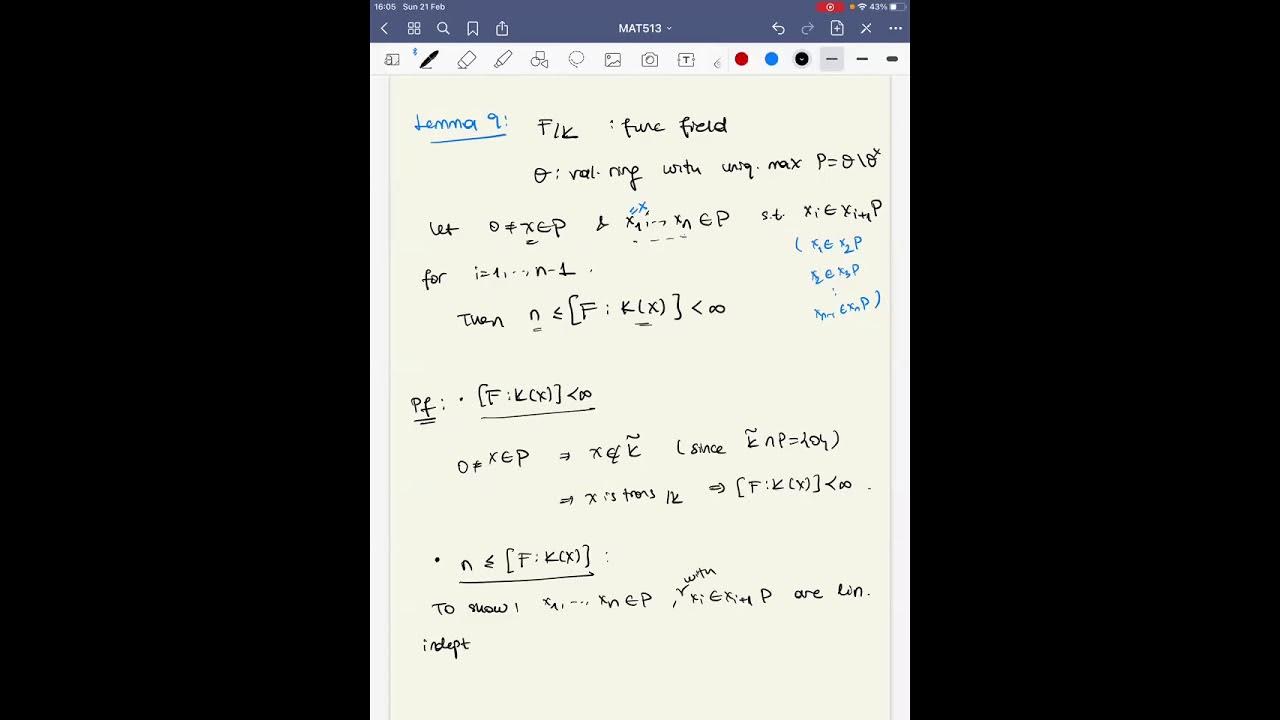 16:05 Sun 21 Feb 43%
MAT513
Lemma 9: F/K : func field
O : val. ring with uniq. max P = O \ O^x
= x
Let 0 ≠ x ∈ P & x_1, ..., x_n ∈ P s.t. x_i ∈ x_{i+1} P
( x_1 ∈ x_2 P
for i = 1, ..., n-1 . x_2 ∈ x_3 P
⋮
Then n ≤ [F : K(x)] < ∞ x_{n-1} ∈ x_n P )
Pf : · [F : K(x)] < ∞
0 ≠ x ∈ P ⇒ x ∉ K̃ ( since K̃ ∩ P = {0} )
⇒ x is trans /K ⇒ [F : K(x)] < ∞ .
· n ≤ [F : K(x)] :
with
To show : x_1, ..., x_n ∈ P , x_i ∈ x_{i+1} P are lin.
indept